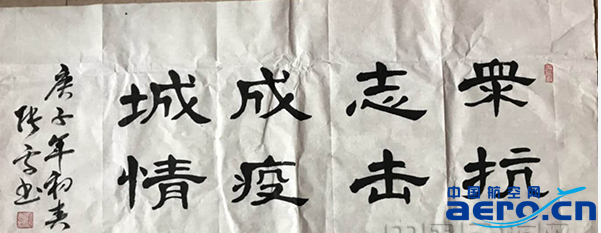 眾志成城
抗击疫情
庚子年初春
张书
中国航空网
aero.cn